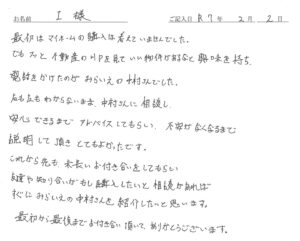 お名前 I 様 ご記入日 R7年2月2日
最初はマイホームの購入は考えていませんでした。
でもフッと不動産のHPを見ていい物件があるなと興味を持ち、
電話をかけたのがみらいえの中村さんでした。
右も左もわからないまま、中村さんに相談し
安心できるまでアドバイスしてもらい、不安がなくなるまで
説明して頂きとてもよかったです。
これから先も、末長いお付き合いをしてもらい
親族や知り合いがもし購入したいと相談があれば
すぐにみらいえの中村さんを紹介したいと思います。
最初から最後までお付き合い頂いて、ありがとうございます。